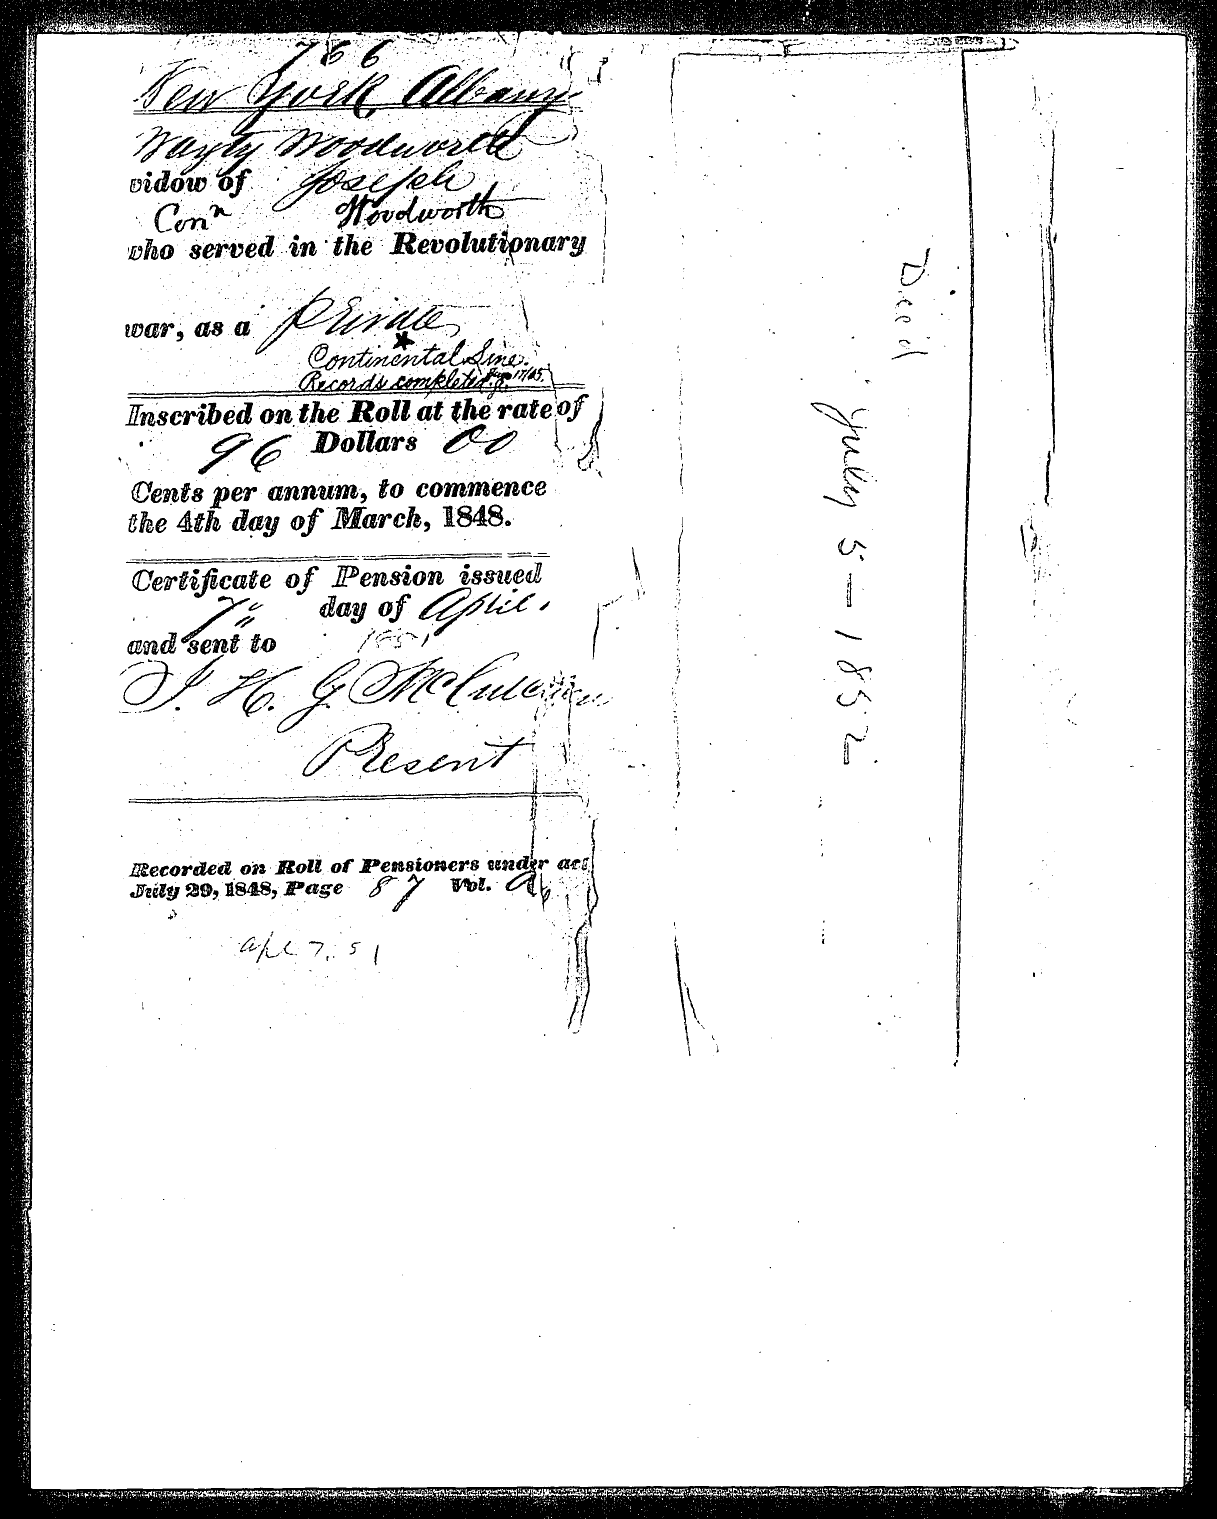 766
New York Albany
Wayty Woodworth
widow of Joseph
Conn Woodworth
who served in the Revolutionary
war, as a Private
Continental Line.
Records completed
Inscribed on the Roll at the rate of
96 Dollars 00
Cents per annum, to commence
the 4th day of March, 1848.
Certificate of Pension issued
7" day of April.
and sent to 1851
J. H. G.
Present
Recorded on Roll of Pensioners under act
July 29, 1848, Page 87 Vol. A
apl 7. 51
Died
July 5 - 1852